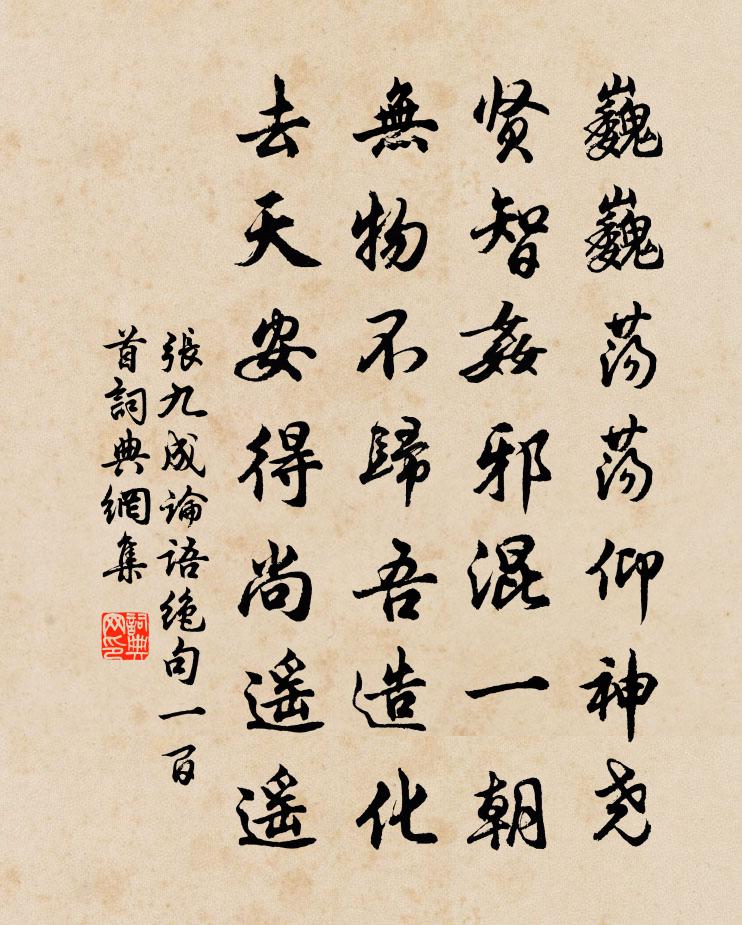 巍巍荡荡仰神尧
贤智姦邪混一朝
無物不歸吾造化
去天安得尚遥遥
張九成论语绝句一百
首詞典網集
詞典网印